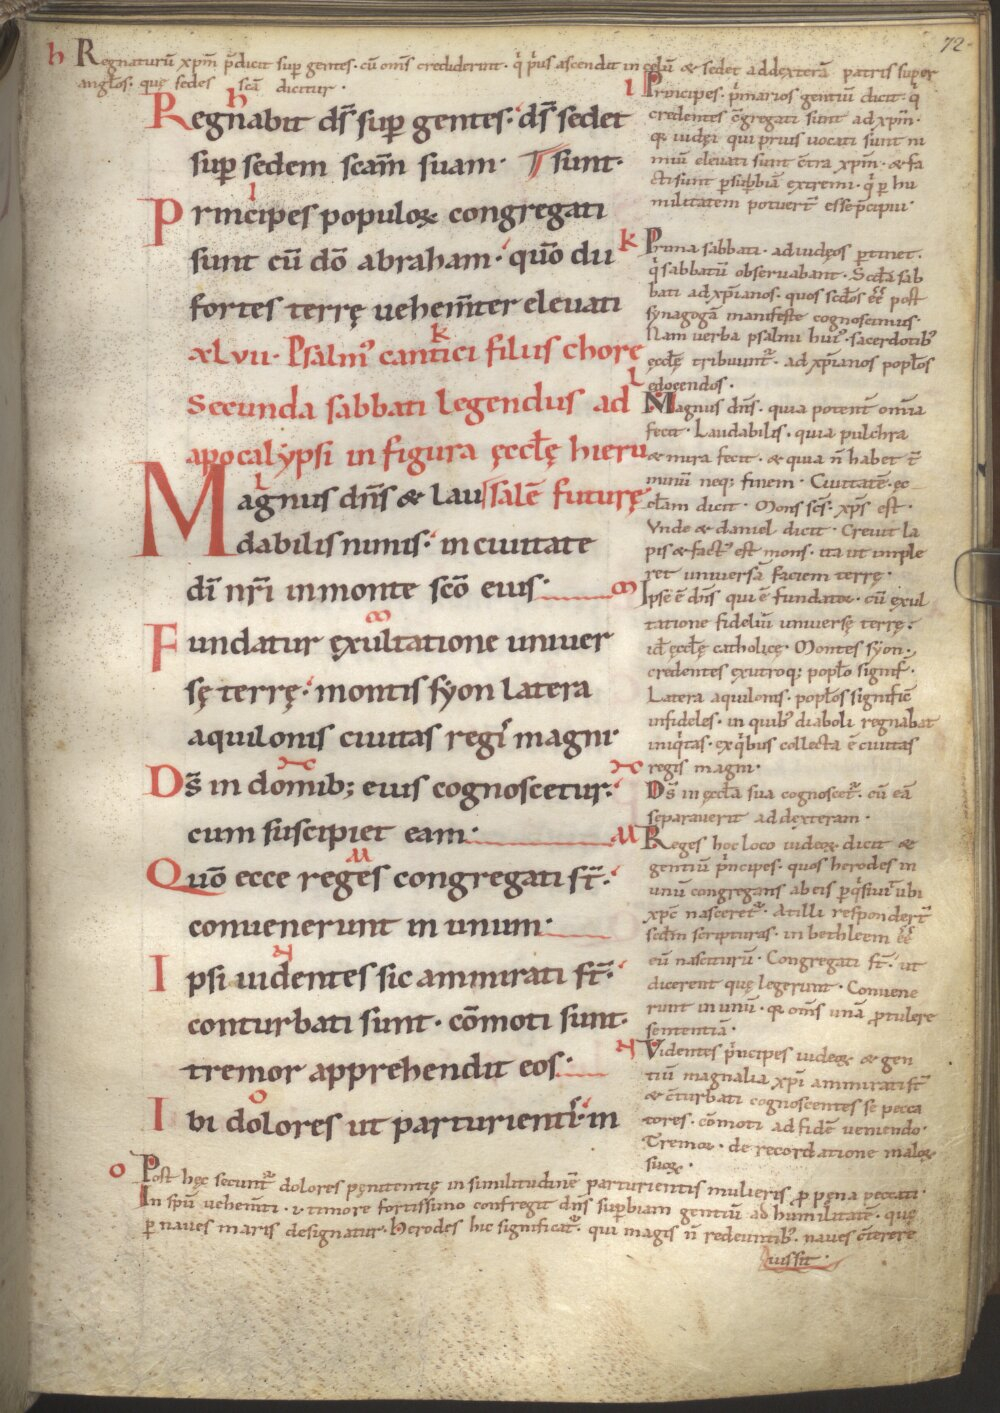 72
h Regnaturū xp̄m p̄dicit sup gentes · cū om̄s crediderint · q̇ ṗus ascendit in celū & sedet ad dexterā patris super
angłos · quę sedes scā dicitur ·
h
Regnabit ds̄ sup gentes · ds̄ sedet
sup sedem scam̄ suam · sunt·
i
Principes populoꝝ congregati
sunt cū dō abraham · quō dii
fortes terrę uehem̄ter eleuati
k
xlvii · Psalm᷒ cantici filiis chore
Secunda sabbati legendus ad
apocalypsi in figura ęccłę hieru
l
Magnus dn̄s & lau salē futurę
dabilis nimis · in ciuitate
dī nr̄i in monte scō eius·
m
Fundatur ęxultatione uniuer
sę terrę · montis syon latera
aquilonis ciuitas regī magni·
Ds̄ in domib; eius cognoscetur ·
cum suscipiet eam·
Quō ecce reges congregati st̄ ·
conuenerunt in unum·
Ipsi uidentes sic ammirati st̄ ·
conturbati sunt · cōmoti sunt·
tremor apprehendit eos·
o
Ibi dolores ut parturient̄ · in
i Principes · ṗmarios gentiū dicit · q̇
credentes c̄gregati sunt ad xp̄m ·
ꝗ iudęi qui prius uocati sunt ni
miū eleuati sunt c̄tra xp̄m · & fa
cti sunt p supbiā extremi · q̇ p hu
militatem potuer̄ esse p̄cipui·
k Prima sabbati · ad iudęos ptinet ·
q̇ sabbatū obseruabant · Scda sab
bati ad xp̄ianos · quos scdos ē̄e post
synagogā manifeste cognoscimus·
Nam uerba psalmi hui᷒ · sacerdotib᷒
ęccłę tribuunt̄ · ad xp̄ianos popłos
edocendos ·
l Magnus dn̄s · quia potent̄ om̄ia
fecit · Laudabilis · quia pulchra
& mira fecit · & quia n̄ habet t̄
minū neq; finem · Ciuitatē · ec
cłam dicit · Mons scs̄ · xp̄s est ·
Vnde & daniel dicit · Creuit la
pis & fact᷒ est mons · ita ut imple
ret uniuersā faciem terrę ·
m Ipse ē dn̄s qui ē fundatoꝛ · cū ęxul
tatione fideliū uniuersę terrę ·
id̄ ęccłę catholicę · Montes syon ·
credentes ęx utroq; popło signif̄ ·
Latera aquilonis · popłos signific̄
infideles · in quib᷒ diaboli regnabat
iniq̇tas · ęx q̇bus collecta ē ciuitas
regis magni·
Ds̄ in ęccła sua cognoscet̄ · cū eā
separauerit ad dęxteram ·
Reges hoc loco iudeoꝝ dicit &
gentiū ṗncipes · quos herodes in
unū congregans ab eis pq̇siuit ubi
xp̄c nasceret̄ · At illi responder̄
scdm scripturas · in bethleem ē̄e
eū nasciturū · Congregati st̄ · ut
dicerent quę legerunt · Conuene
runt in unū · ꝗ om̄s unā ptulere
sententiā ·
Videntes ṗncipes iudeoꝝ & gen
tiū magnalia xp̄i ammirati st̄
& c̄turbati cognoscentes se pecca
tores · cōmoti ad fidē ueniendo ·
Tremoꝛ · de recordatione maloꝝ
suoꝝ ·
o Post hęc secunt̄ dolores pęnitentię in similitudinē parturientis mulieris p pęna peccati ·
In spū uehem̄ti · i· timore fortissimo confregit dn̄s supbiam gentiū ad humilitatē · quę
p naues maris designatur · Herodes hic significat̄ · qui magis n̄ redeuntib᷒ · naues c̄terere
iussit ·